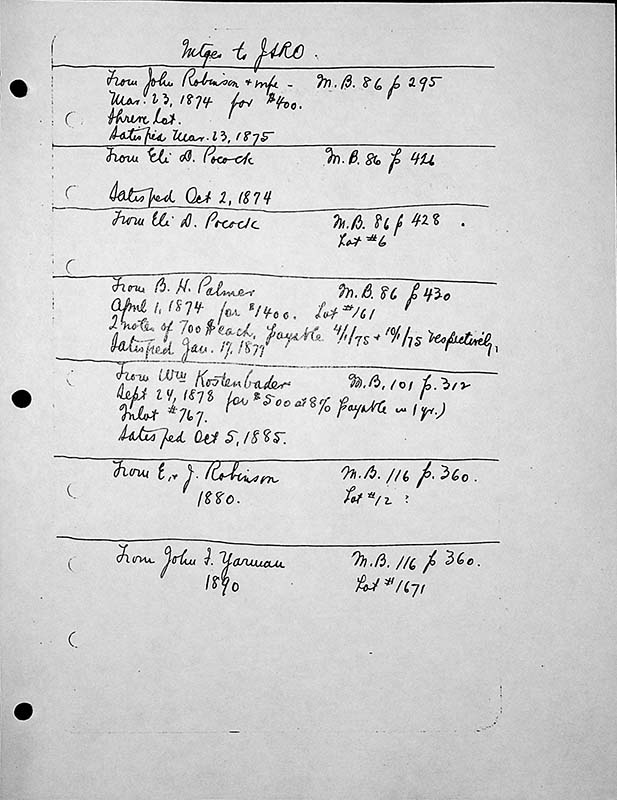 Mtges to JSRO.
From John Robinson + wife - M.B. 86 p 295
Mar. 23, 1874 for $400.
Lot.
Satisfied Mar. 23, 1875
From Eli D. Pocock M.B. 86 p 426
Satisfied Oct 2, 1874
From Eli D. Pocock M.B. 86 p 428
Lot #6
From B. H. Palmer M.B. 86 p 430
April 1, 1874 for $1400. Lot #161
2 notes of 700 $ each. payable 4/1/75 + 10/1/75 respectively,
Satisfied Jan. 17, 1879
From Wm Kostenbader M.B. 101 p. 312
Sept 24, 1878 for $500 at 8% payable in 1 yr.)
Inlot #767.
Satisfied Oct 5, 1885.
From E. + J. Robinson M.B. 116 p. 360.
1880. Lot #12 ?
From John F. Yarman M.B. 116 p 360.
1890 Lot #1671